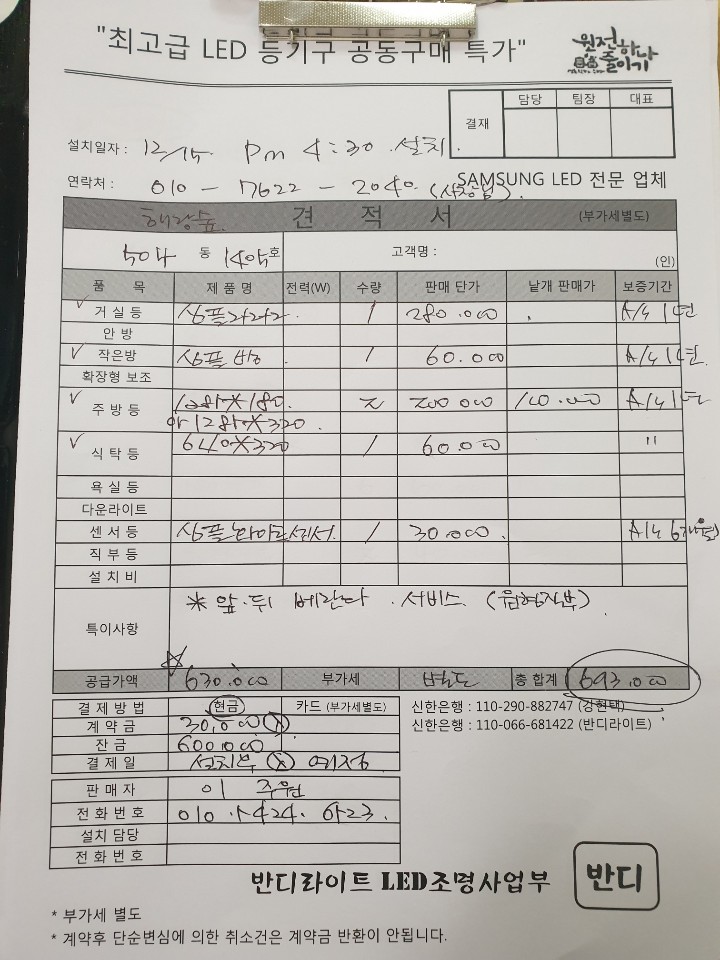 "최고급 LED 등기구 공동구매 특가"
원전하다
줄이기
결재 담당 팀장 대표
설치일자 : 12/15. Pm 4:30 설치.
연락처 : 010 - 7622 - 2040 (사장님).
SAMSUNG LED 전문 업체
해광숲 견 적 서 (부가세별도)
504 동 1405호 고객명 : (인)
품 목 제 품 명 전력(W) 수량 판매 단가 낱개 판매가 보증기간
거 실 등 1 280.000 A/s 1년
안 방
작은방 심플 방 1 60.000 A/s 1년
확장형 보조
주 방 등 1281*180 2 200 000 100.000 A/s 1년
아 1281*320.
식 탁 등 640*320 1 60.000 "
욕 실 등
다운라이트
센 서 등 심플라이트센서. 1 30.000. A/s 6개월
직 부 등
설 치 비
특이사항 * 앞.뒤 베란다 서비스 (원형직부)
공급가액 630.000 부가세 별도 총 합계 693.000
결 제 방 법 현금 카드 (부가세별도)
계 약 금 30,000
잔 금 600.000
결 제 일 설치후 예정
신한은행 : 110-290-882747 (강현택)
신한은행 : 110-066-681422 (반디라이트)
판 매 자 이 주원
전 화 번 호 010
설치 담당
전 화 번 호
반디라이트 LED조명사업부 반디
* 부가세 별도
* 계약후 단순변심에 의한 취소건은 계약금 반환이 안됩니다.